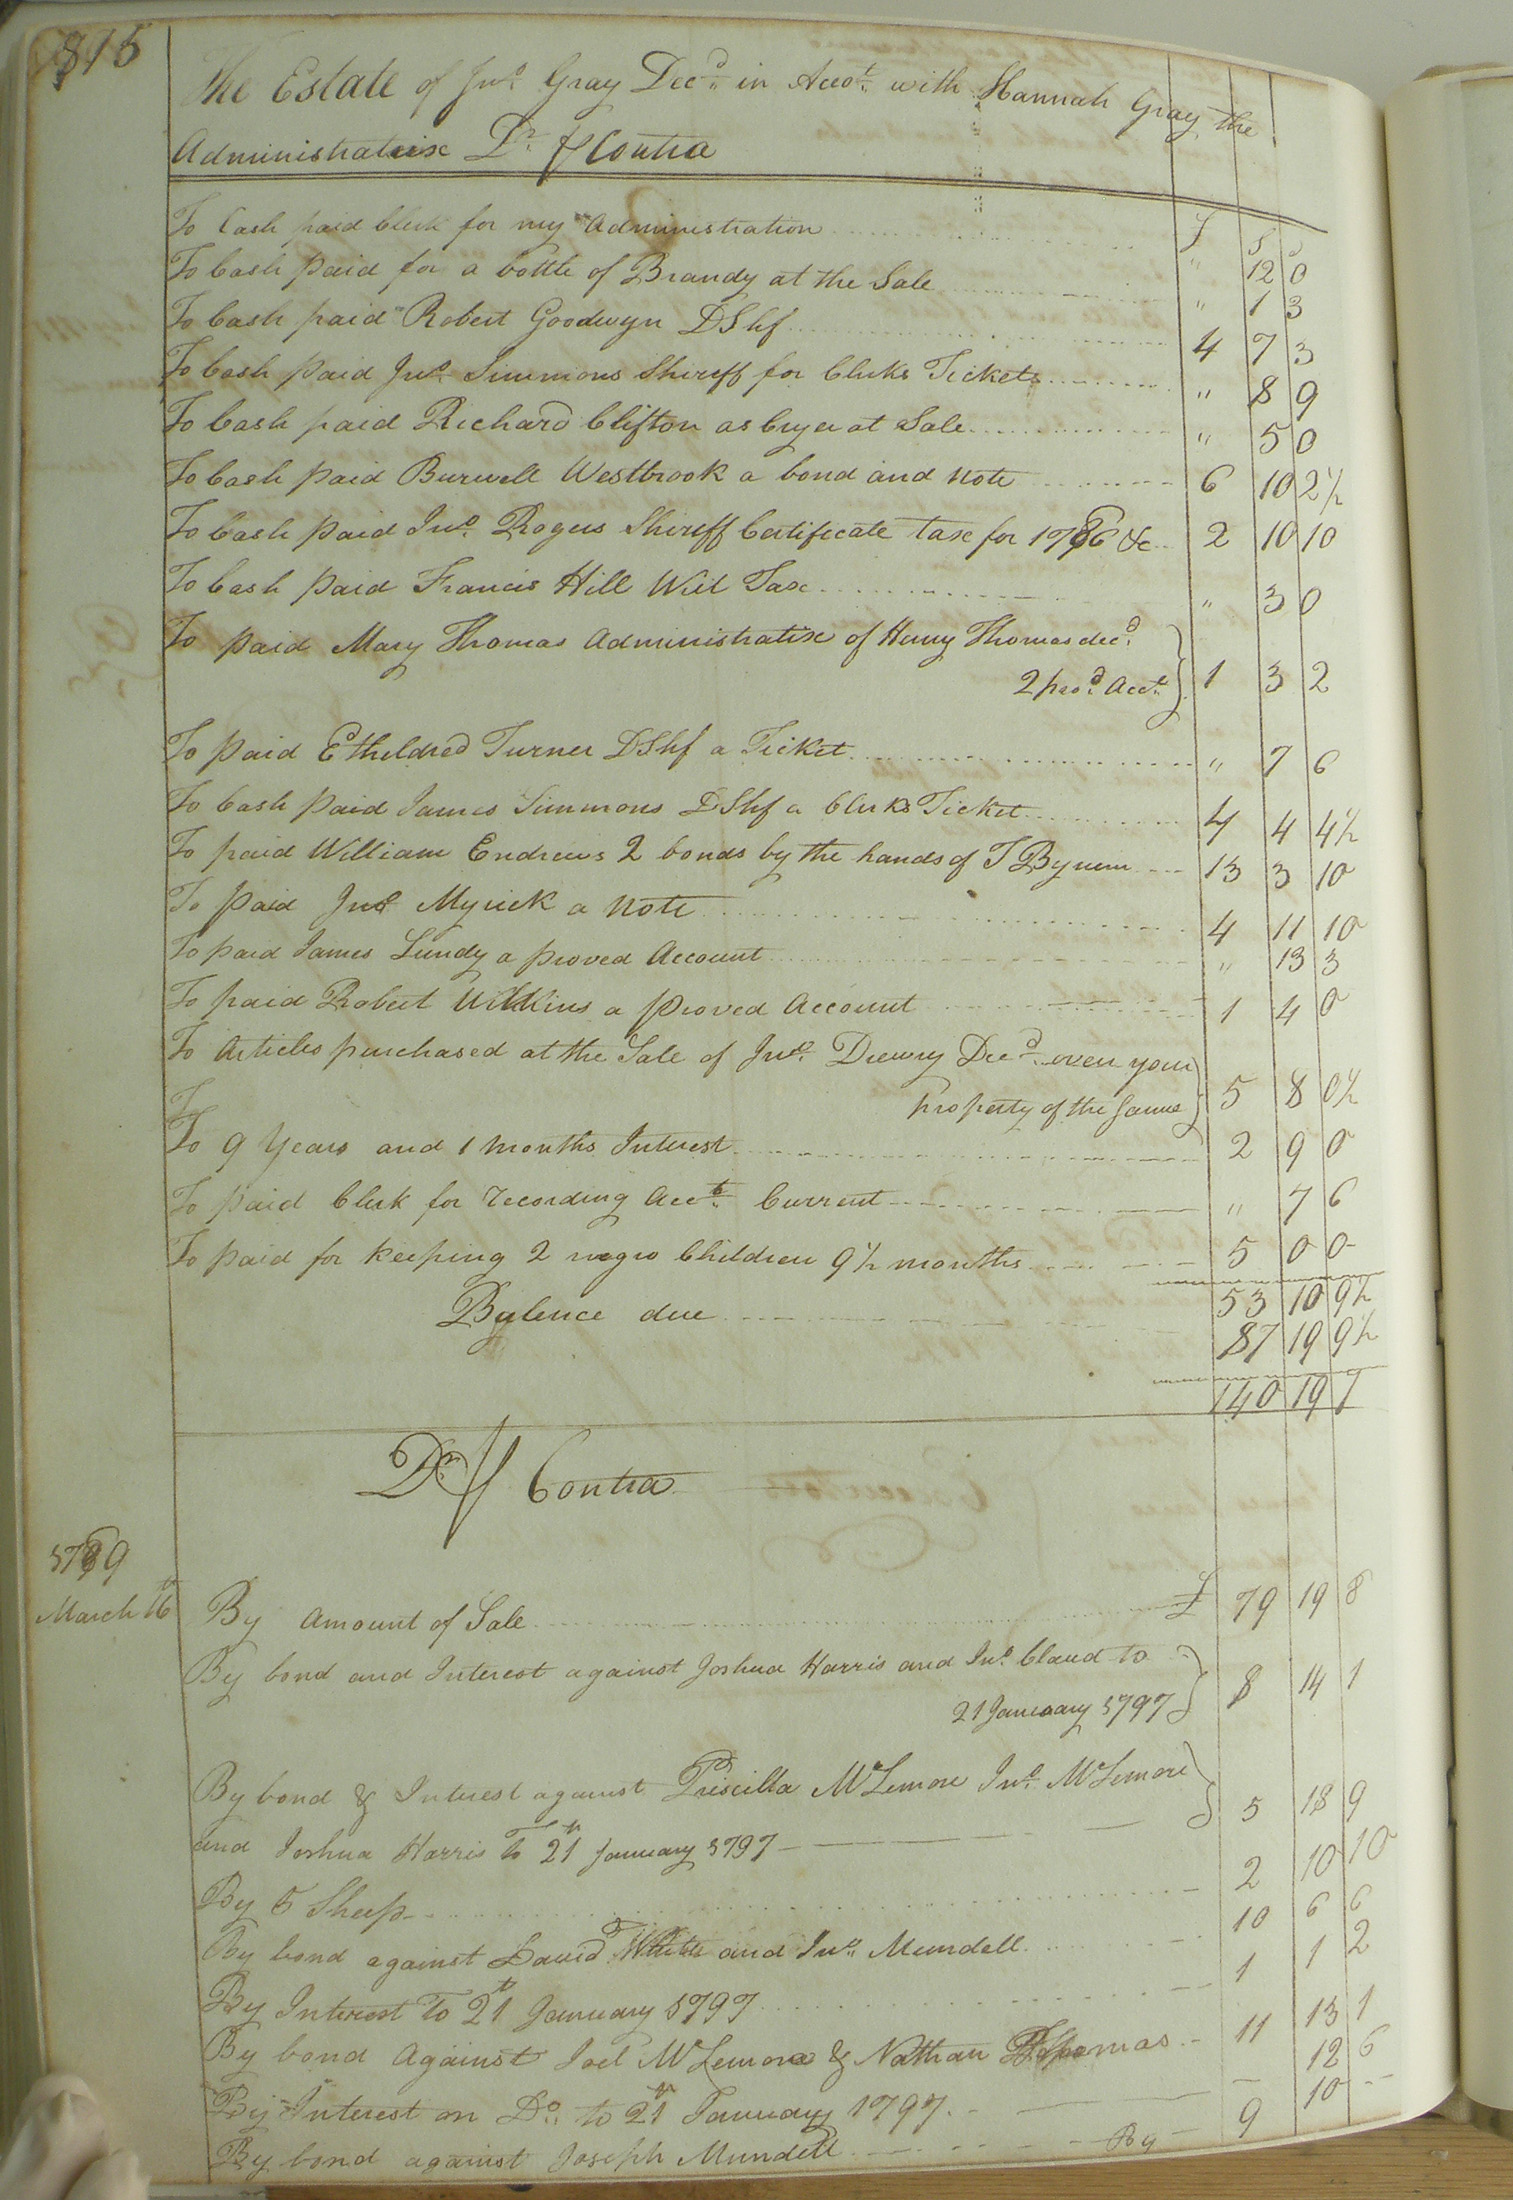 815
The Estate of Jno. Gray Decd. in Accot. with Hannah Gray the
Administratrix Dr. Contra
£ S D
To Cash paid Clerk for my Administration " 12 0
To Cash paid for a bottle of Brandy at the Sale " 1 3
To Cash paid Robert Goodwyn DShf 4 7 3
To Cash paid Jno. Simmons Sheriff for Clerks Tickets " 8 9
To Cash paid Richard Clifton as Cryer at Sale " 5 0
To Cash paid Burwell Westbrook a bond and note 6 10 2½
To Cash paid Jno. Rogers Sheriff Certificate tax for 1786 &c 2 10 10
To Cash paid Francis Hill Wit Tax " 3 0
To paid Mary Thomas Administratix of Henry Thomas decd.
2 provd. Acct. 1 3 2
To paid Etheldred Turner DShf a Ticket " 7 6
To Cash paid James Simmons DShf a Clerks Ticket 4 4 4½
To paid William Endrews 2 bonds by the hands of T Bynum 13 3 10
To paid Jno Myrick a note 4 11 10
To paid James Lundy a proved Account " 13 3
To paid Robert Wilkins a proved Account 1 4 0
To Articles purchased at the Sale of Jno. Drewry Decd. over your
property of the same 5 8 0½
To
To 9 Years and 1 months Interest 2 9 0
To paid Clerk for recording Acct. Current " 7 6
To paid for keeping 2 negro Children 9½ months 5 0 0
53 10 9½
Balence due 87 19 9½
140 19 7
Dr Contra
1789
March 16 By Amount of Sale £ 79 19 8
By bond and Interest against Joshua Harris and Jno. Claud to
21 January 1797 8 14 1
By bond & Interest against Priscilla McLemore Jno. McLemore
and Joshua Harris to 21st January 1797 5 18 9
By 5 Sheep 2 10 10
By bond against David and Jno. Mundell 10 6 6
By Interest To 21st January 1797 1 1 2
By bond Against Joel McLemore & Nathan Thomas 11 13 1
By Interest on Do. to 21st January 1797 - 12 6
By bond against Joseph Mundell 9 10 --
By